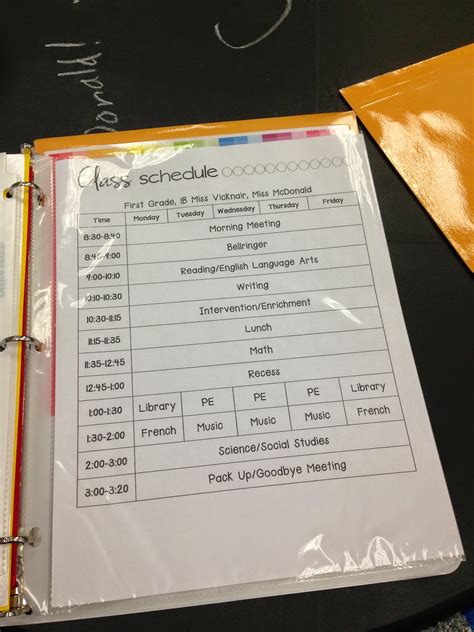 onald!
Class schedule
First Grade, 1B Miss Vicknair, Miss McDonald
Time Monday Tuesday Wednesday Thursday Friday
8:30-8:40 Morning Meeting
8:40-9:00 Bellringer
9:00-10:10 Reading/English Language Arts
10:10-10:30 Writing
10:30-11:15 Intervention/Enrichment
11:15-11:35 Lunch
11:35-12:45 Math
12:45-1:00 Recess
1:00-1:30 Library PE PE PE Library
1:30-2:00 French Music Music Music French
2:00-3:00 Science/Social Studies
3:00-3:20 Pack Up/Goodbye Meeting